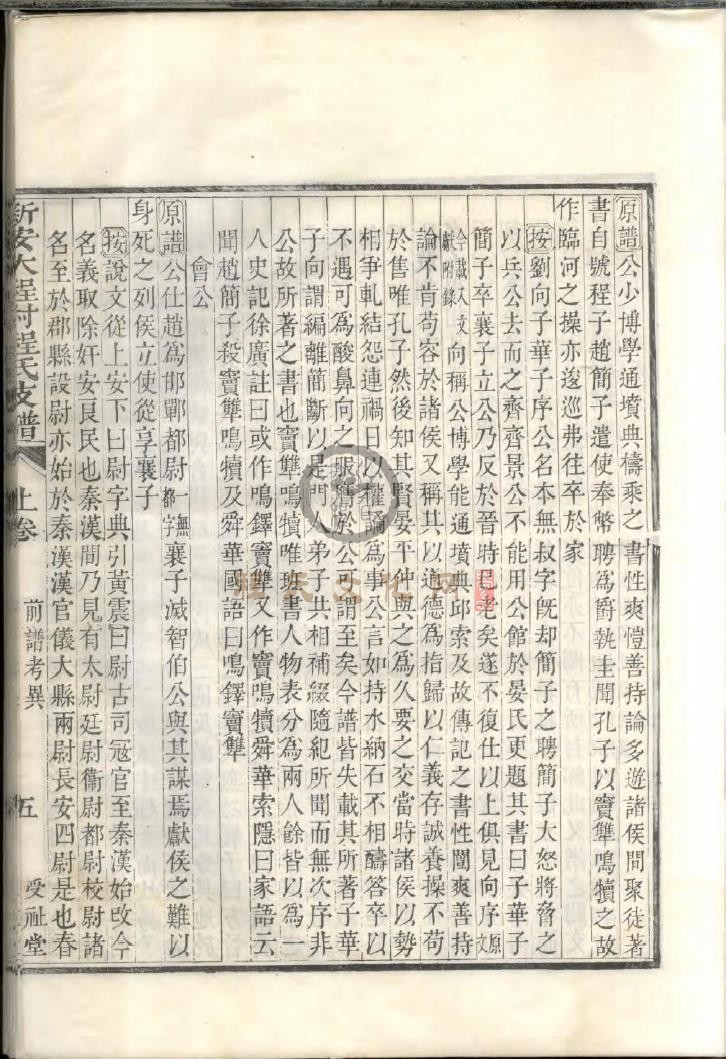 原譜公少博學通墳典檮乘之書性爽愷善持論多遊諸侯間聚徒著
書自號程子趙簡子遣使奉幣聘爲爵執圭聞孔子以竇犨鳴犢之故
作臨河之操亦逡巡弗往卒於家
按劉向子華子序公名本無叔字旣却簡子之聘簡子大怒將脅之
以兵公去而之齊齊景公不能用公館於晏氏更題其書曰子華子
簡子卒襄子立公乃反於晉時已老矣遂不復仕以上俱見向序原文
今載入文獻附錄向稱公博學能通墳典邱索及故傳記之書性闓爽善持
論不肯苟容於諸侯又稱其以道德爲指歸以仁義存誠養操不苟
於售唯孔子然後知其賢晏平仲與之爲久要之交當時諸侯以勢
相爭軋結怨連禍日以權譎爲事公言如持水納石不相醻答卒以
不遇可爲酸鼻向之服膺於公可謂至矣今譜皆失載其所著子華
子向謂編離簡斷以是門人弟子共相補綴隨紀所聞而無次序非
公故所著之書也竇犨鳴犢唯班書人物表分爲兩人餘皆以爲一
人史記徐廣註曰或作鳴鐸竇犨又作竇鳴犢舜華索隱曰家語云
聞趙簡子殺竇犨鳴犢及舜華國語曰鳴鐸竇犨
會公
原譜公仕趙爲邯鄲都尉一無都字襄子滅智伯公與其謀焉獻侯之難以
身死之列侯立使從享襄子
按說文從上安下曰尉字典引黃震曰尉古司冦官至秦漢始改今
名義取除奸安良民也秦漢間乃見有太尉廷尉衞尉都尉校尉諸
名至於郡縣設尉亦始於秦漢漢官儀大縣兩尉長安四尉是也春
新安大程村程氏支譜 上卷 前譜考異 五 受祉堂